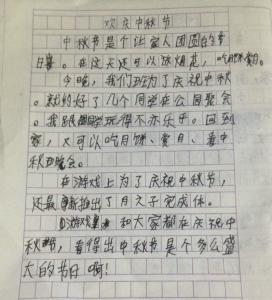 欢庆中秋节
中秋节是个让家人团圆的节
日。在这天还可以放烟花，吃月饼、赏月。
今晚，我们班为了庆祝中秋
。就约好了几个同学在公园聚会
。我跟同学玩得不亦乐乎。回到
家，又可以吃月饼、赏月、看中
秋晚会。
在游戏上为了庆祝中秋节，
还最新推出了月光子完成体。
游戏和大家都在庆祝中
秋节，看得出中秋节是个多么盛
大的节日啊！